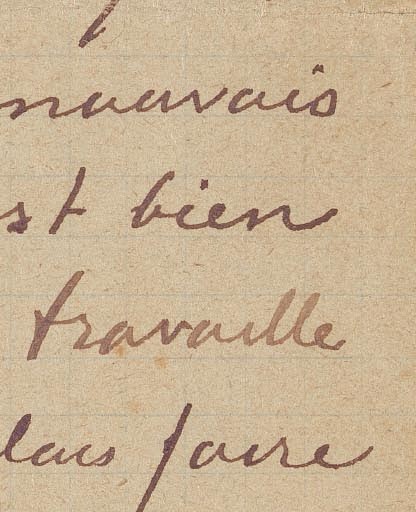 mauvais
st bien
travaille
lais faire